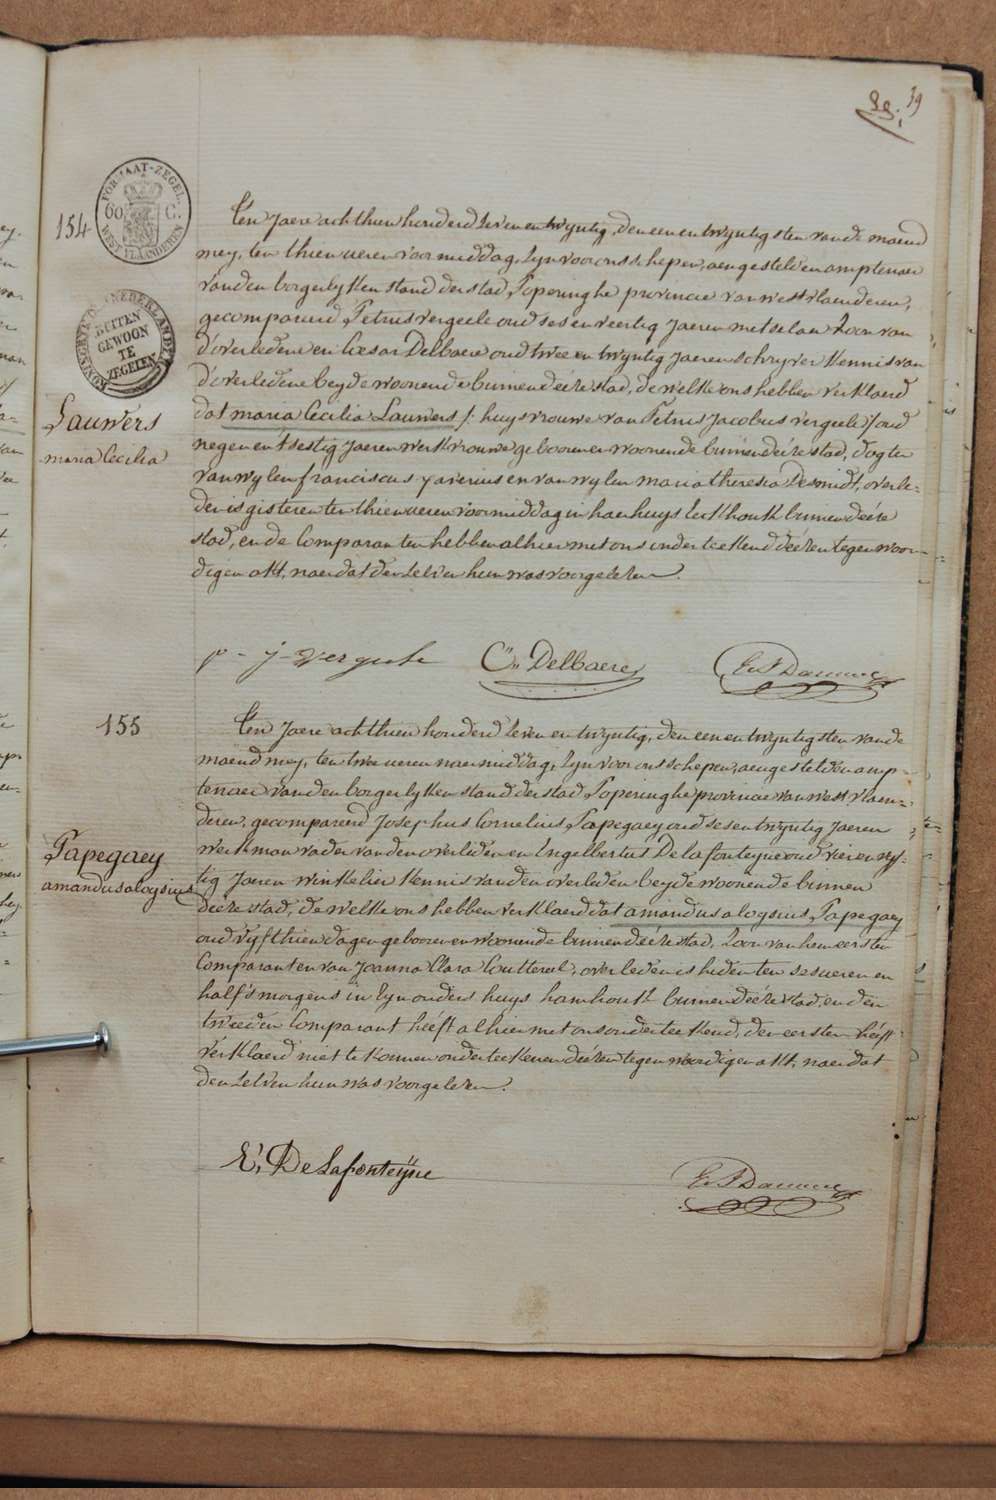 39
154
FORMAAT-ZEGEL
60 C:
WEST VLAANDEREN
BUITEN
GEWOON
TE
ZEGELEN
Lauwers
maria Cecilia
Ten Jaere achthien honderd zeven en twyntig, den een en twyntigsten van de maend
mey, ten thien ueren voormiddag, zyn voor ons schepen, aengestelden amptenaer
van den borgerlyken stand der stad Poperinghe provincie van westvlaenderen,
gecompareerd Petrus vergeele oud ses en veertig Jaeren metselaer Zoon van
d'overledene en Cæsar Delbaere oud twee en twyntig Jaeren schryver Kennis van
d'overledene beyde woonende binnen déeze stad, de welke ons hebben verklaerd
dat maria Cecilia Lauwers /: huysvrouwe van Petrus Jacobus vergeele :/ oud
negen en t'sestig Jaeren werkvrouwe gebooren en woonende binnen déeze stad, dogter
van wylen franciscus xaverius en van wylen maria theresia Desmidt, overle=
den is gisteren ten thien ueren voormiddag in haer huys Eekhoutk binnen déeze
stad, en de Comparanten hebben alhier met ons onderteekend déezen tegenwoor=
digen akt, naer dat den zelven hun was voorgelezen.
p - j - vergeele
C.. Delbaere
155
Papegaey
amandus aloysius
Ten Jaere achthien honderd zeven en twyntig, den een en twyntigsten van de
maend mey, ten twee ueren naermiddag, zyn voor ons schepen, aengestelden amp=
tenaer van den borgerlyken stand der stad Poperinghe provincie van westvlaen=
deren, gecompareerd Josephus Cornelius Papegaey oud ses en twyntig Jaeren
werkman vader van den overledenen en Engelbertus Delafonteyne oud vier en vyf=
tig Jaeren winkelier Kennis van den overleden beyde woonende binnen
déeze stad, de welke ons hebben verklaerd dat amandus aloysius Papegaey
oud vyfthien dagen gebooren en woonende binnen déeze stad, Zoon van hem eersten
Comparant en van Joanna Clara Coutterel, overleden is heden ten ses ueren en
half s'morgens in zyn ouders huys hamhoutk binnen déeze stad, en den
tweeden Comparant heéft alhier met ons onderteekend, den eersten heéft
verklaerd niet te Konnen onderteekenen déezen tegenwoordigen akt, naer dat
den zelven hun was voorgelezen.
E. De Lafonteyne